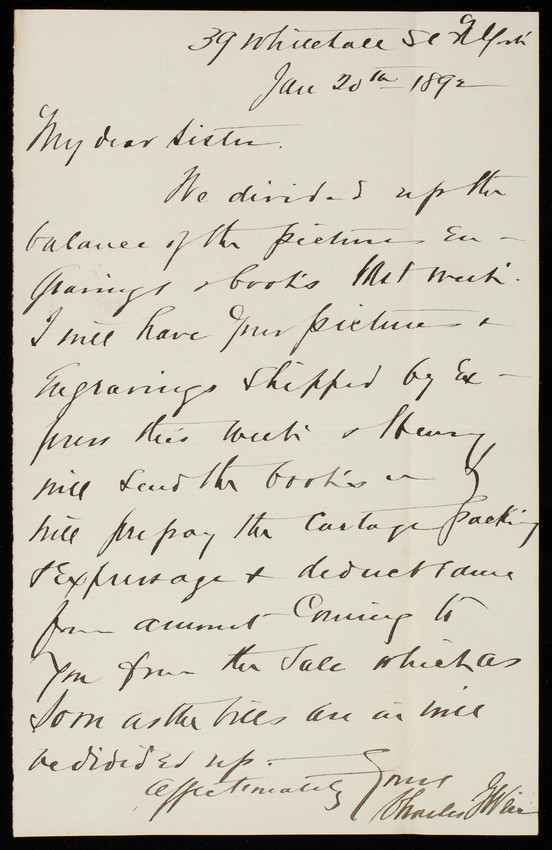 39 Whitehall St N York
Jan 20th 1892
My dear Sister.
We divided up the
balance of the pictures En-
gravings & books last week.
I will have your pictures &
Engravings shipped by Ex-
press this week & Henry
will send the books
will prepay the Cartage packing
& Expressage & deduct same
from amount Coming to
you from the Sale which as
soon as the bills are in will
be divided up.
Affectionately Yours
Charles J Weir